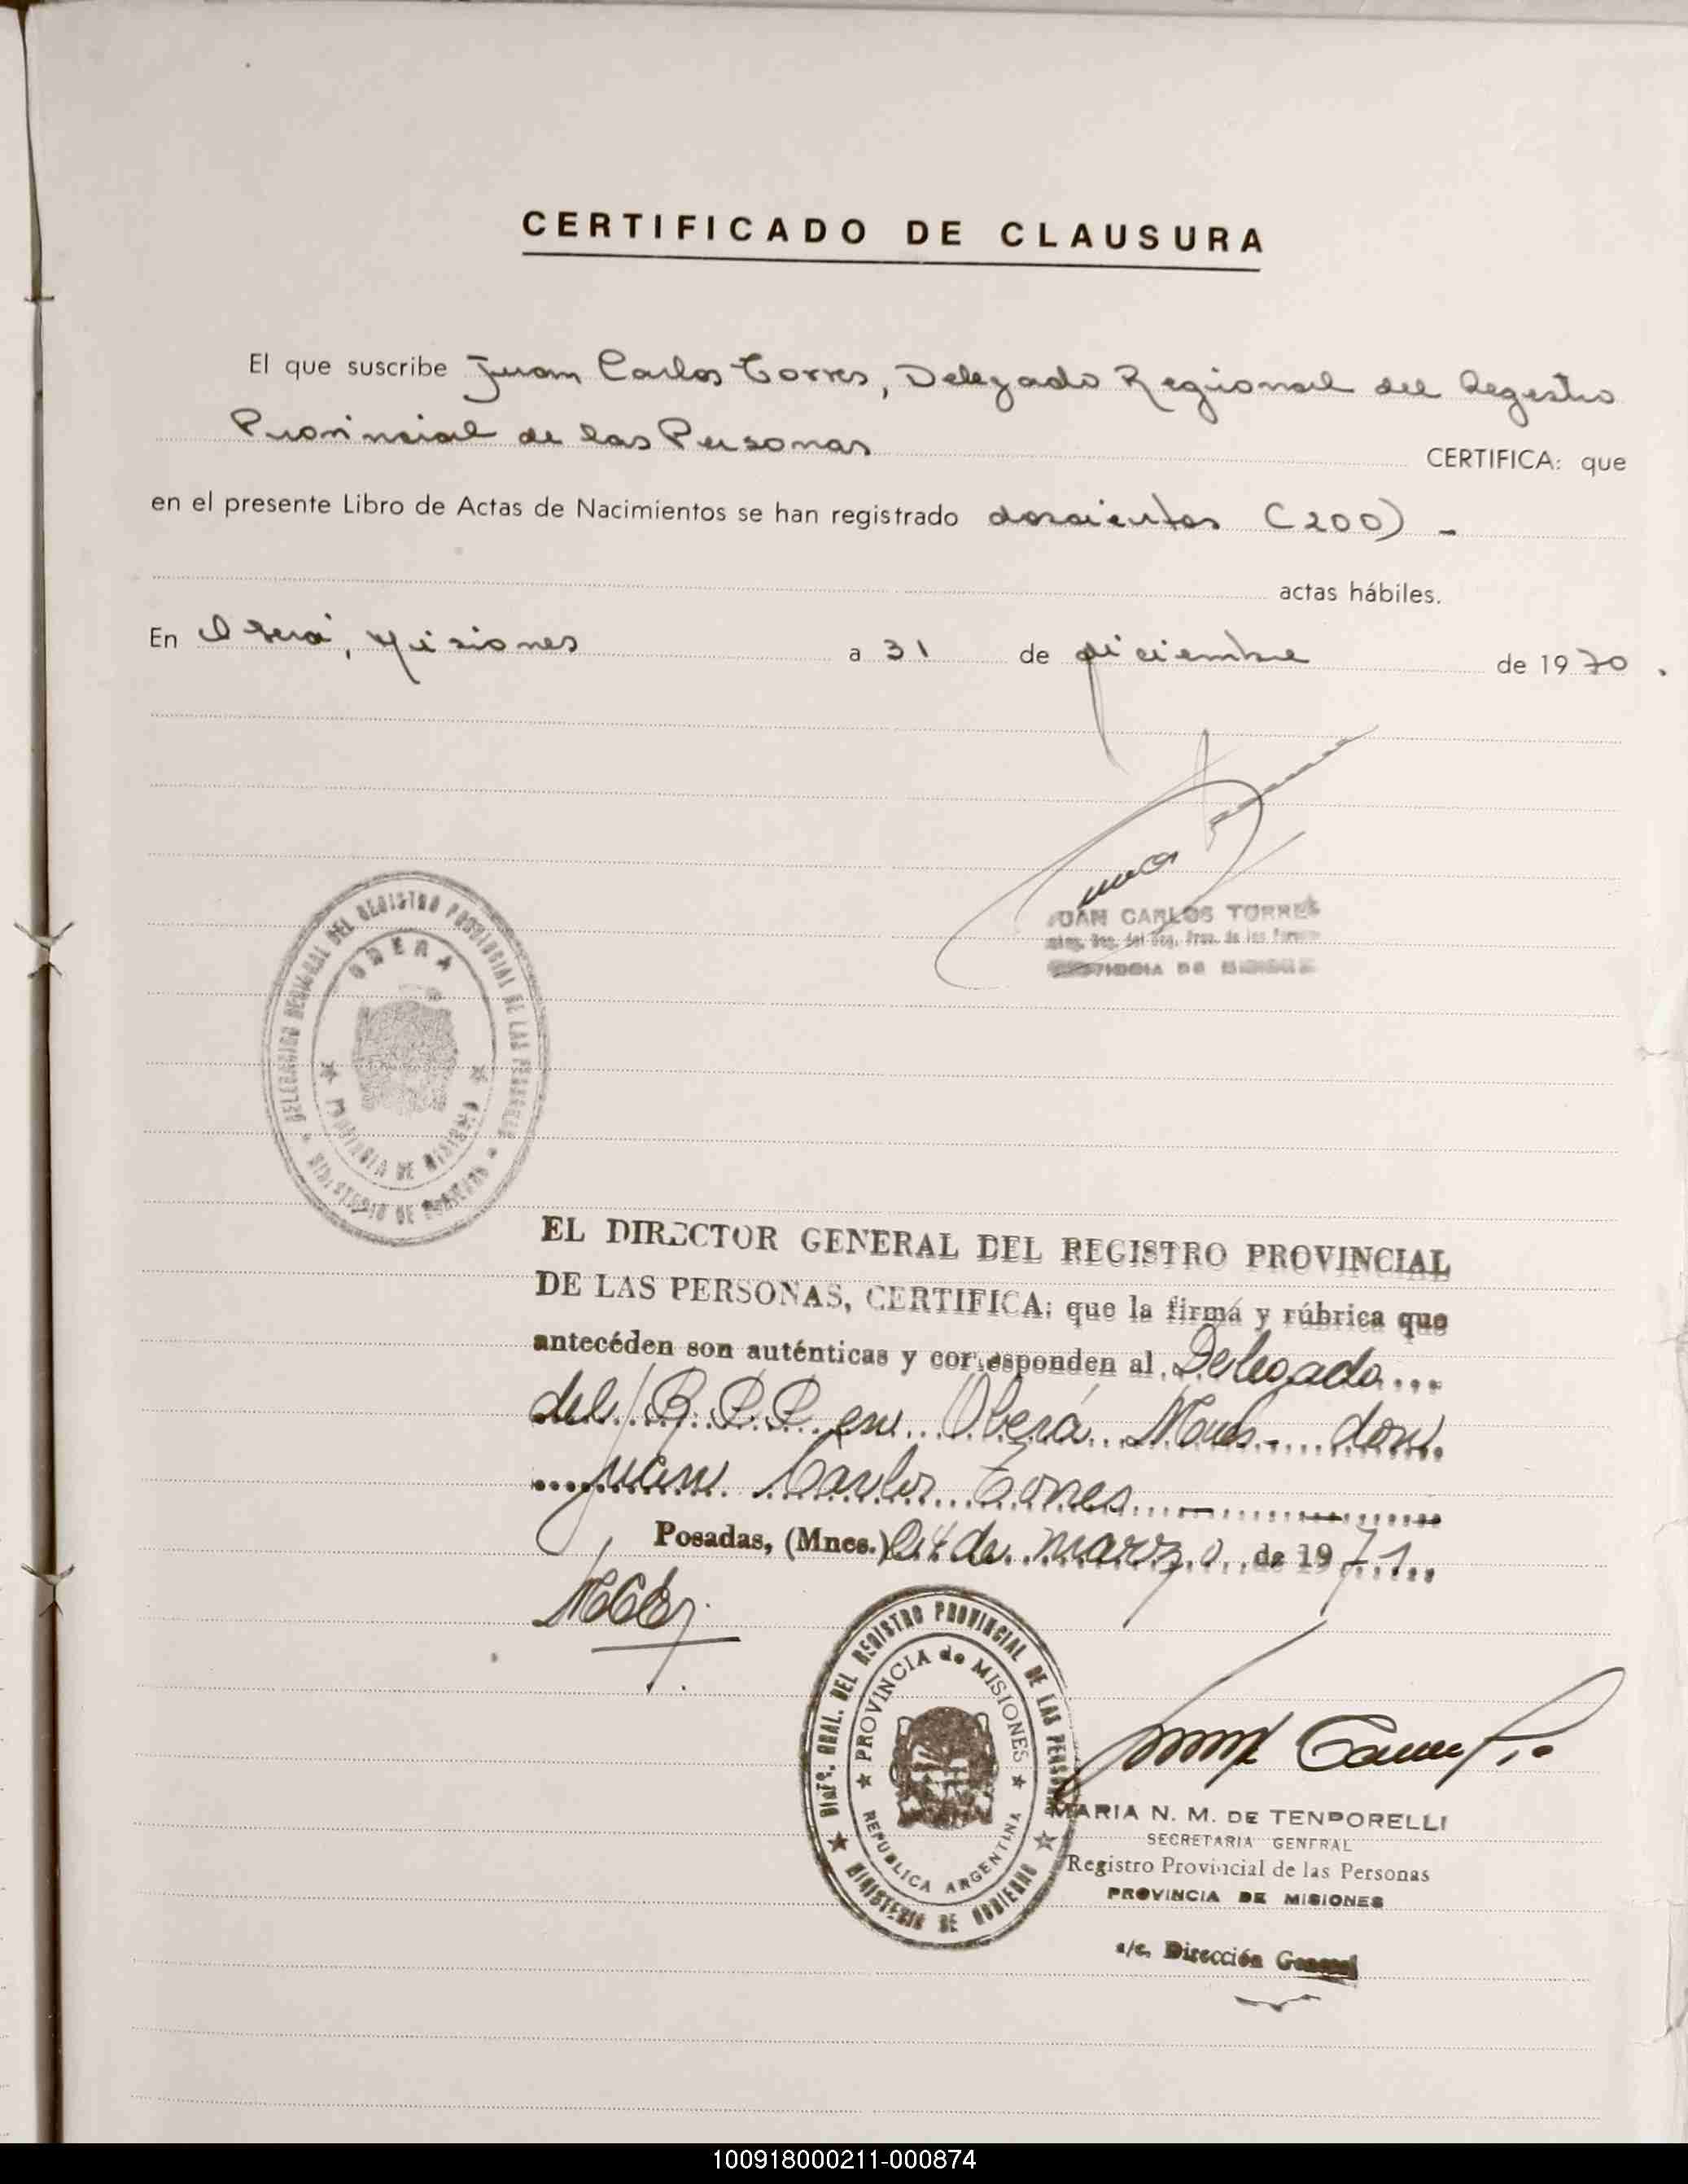 CERTIFICADO DE CLAUSURA
El que suscribe Juan Carlos Torres, Delegado Regional del Registro
Provincial de las Personas CERTIFICA: que
en el presente Libro de Actas de Nacimientos se han registrado doscientos (200) -
actas hábiles.
En Oberá, Misiones a 31 de diciembre de 1970.
JUAN CARLOS TORRES
DELEGACION REGIONAL DEL REGISTRO PROVINCIAL DE LAS PERSONAS
OBERA
PROVINCIA DE MISIONES
MINISTERIO DE GOBIERNO
EL DIRECTOR GENERAL DEL REGISTRO PROVINCIAL
DE LAS PERSONAS, CERTIFICA: que la firma y rúbrica que
antecéden son auténticas y corresponden al Delegado...
del R.P.P. en Oberá Mnes. don
Juan Carlos Torres
Posadas, (Mnes.) de marzo de 1971
DIREC. GRAL. DEL REGISTRO PROVINCIAL DE LAS PERSONAS
PROVINCIA de MISIONES
REPUBLICA ARGENTINA
MINISTERIO DE GOBIERNO
MARIA N. M. DE TENPORELLI
SECRETARIA GENERAL
Registro Provincial de las Personas
PROVINCIA DE MISIONES
a/c. Dirección General
100918000211-000874